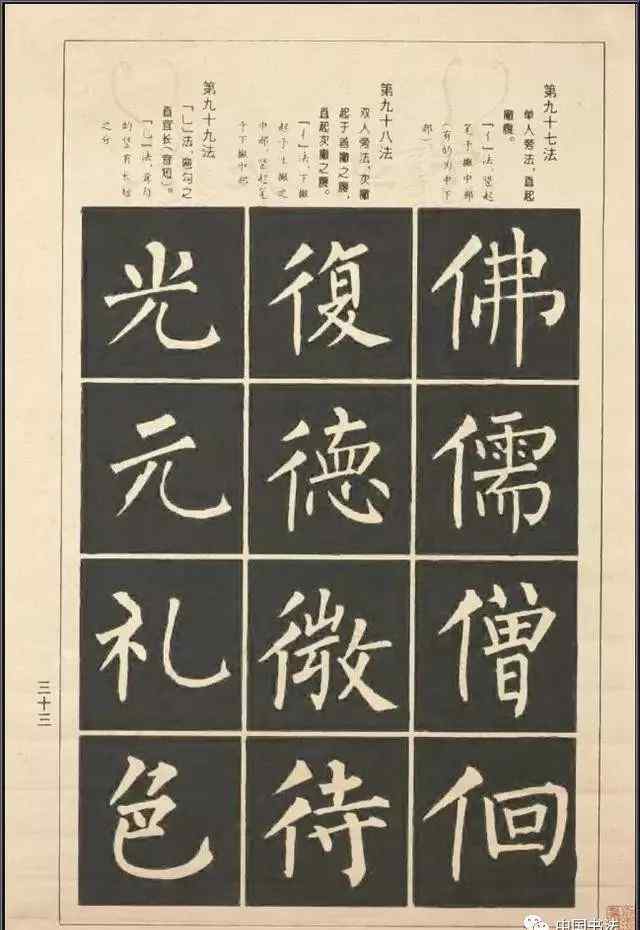 第九十七法
单人旁法，直起
撇腹。
「亻」法，竖起
笔于撇中部
（有的为中下
部）
第九十八法
双人旁法，次撇
起于首撇之腹，
直起次撇之腹。
「彳」法，下撇
起于上撇之
中部，竖起笔
于下撇中部
第九十九法
「乚」法，宛勾之
直宜长（音短）。
「乚」法，弯勾
的竖有长短
之分
佛儒僧佪
復德微待
光元礼色
三十三
中国书法